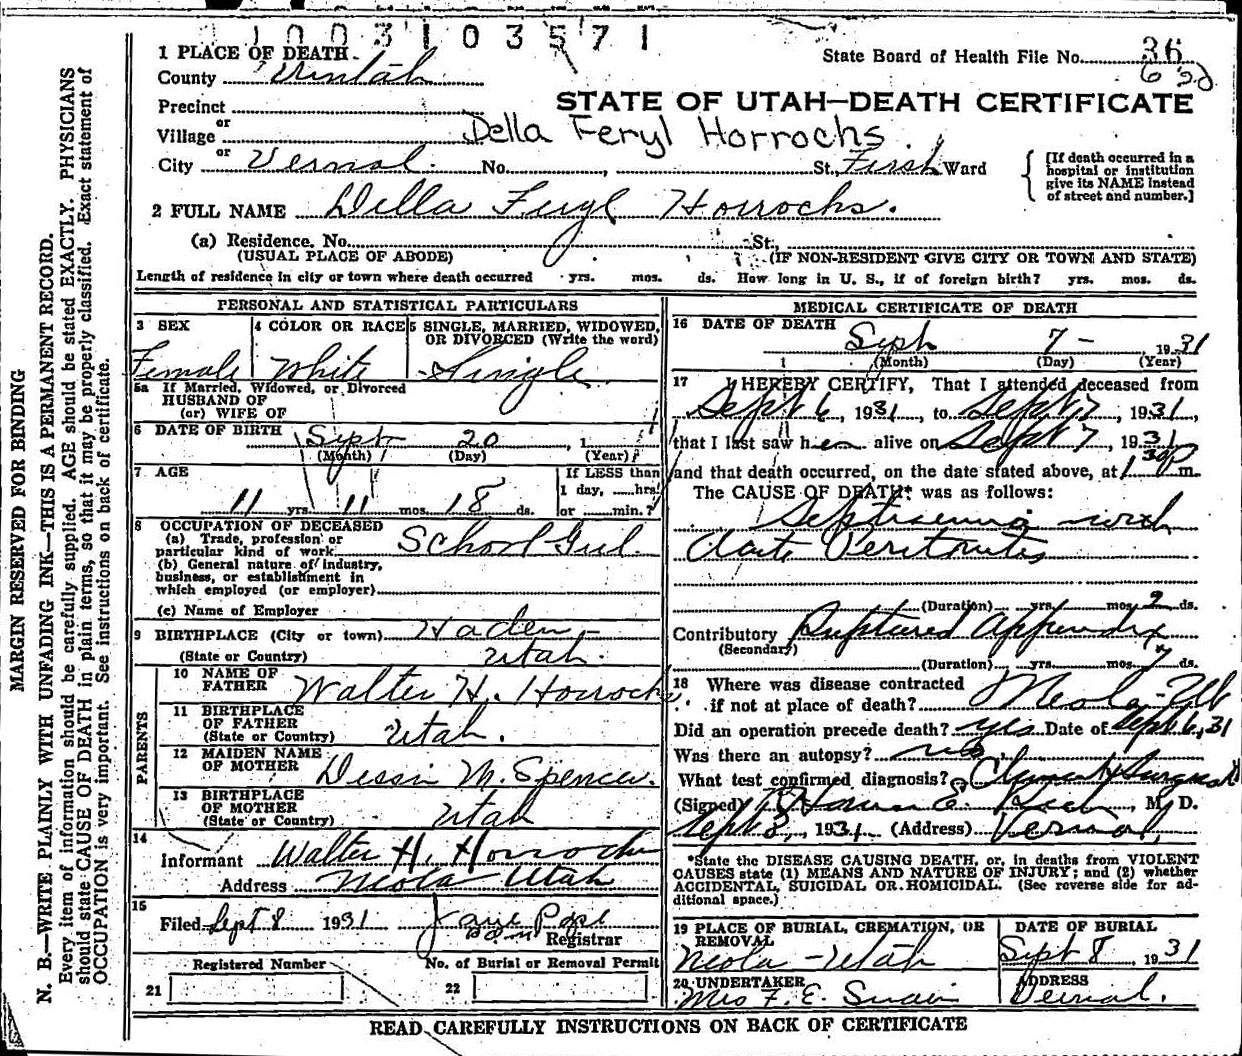 1003103571
1 PLACE OF DEATH
State Board of Health File No. 36
County Uintah
62d
Precinct
STATE OF UTAH—DEATH CERTIFICATE
or
Village
Della Feryl Horrocks
City or Vernal No. , St., First Ward
[If death occurred in a
hospital or institution
give its NAME instead
of street and number.]
2 FULL NAME Della Feryl Horrocks.
(a) Residence. No. St.,
(USUAL PLACE OF ABODE) (IF NON-RESIDENT GIVE CITY OR TOWN AND STATE)
Length of residence in city or town where death occurred yrs. mos. ds. How long in U. S., if of foreign birth? yrs. mos. ds.
PERSONAL AND STATISTICAL PARTICULARS
3 SEX 4 COLOR OR RACE 5 SINGLE, MARRIED, WIDOWED,
OR DIVORCED (Write the word)
Female White Single
5a If Married, Widowed, or Divorced
HUSBAND OF
(or) WIFE OF
6 DATE OF BIRTH Sept 20 , 1
(Month) (Day) (Year)
7 AGE If LESS than
1 day, hrs.
11 yrs. 11 mos. 18 ds. or min.?
8 OCCUPATION OF DECEASED
(a) Trade, profession or
particular kind of work School Girl.
(b) General nature of industry,
business, or establishment in
which employed (or employer)
(c) Name of Employer
9 BIRTHPLACE (City or town) Haden -
(State or Country) Utah.
PARENTS
10 NAME OF
FATHER Walter H. Horrocks
11 BIRTHPLACE
OF FATHER
(State or Country) Utah.
12 MAIDEN NAME
OF MOTHER Dessie M. Spencer.
13 BIRTHPLACE
OF MOTHER
(State or Country) Utah
14
Informant Walter H. Horrocks
Address Neola Utah
15
Filed Sept 8 1931
Registrar
Registered Number No. of Burial or Removal Permit
21 22
MEDICAL CERTIFICATE OF DEATH
16 DATE OF DEATH
Sept 7 - 1931
(Month) (Day) (Year)
17 I HEREBY CERTIFY, That I attended deceased from
Sept 6, 1931, to Sept 7, 1931,
that I last saw her alive on Sept 7, 1931
and that death occurred, on the date stated above, at 1 30 P m.
The CAUSE OF DEATH* was as follows:
Septicemia with
Acute Peritonitis
(Duration) yrs. mos. 2 ds.
Contributory Ruptured Appendix
(Secondary)
(Duration) yrs. mos. 7 ds.
18 Where was disease contracted
if not at place of death? Neola - Ut
Did an operation precede death? yes Date of Sept 6, 31
Was there an autopsy? no
What test confirmed diagnosis?
(Signed) , M. D.
Sept 8, 1931 (Address) Vernal,
*State the DISEASE CAUSING DEATH, or, in deaths from VIOLENT
CAUSES state (1) MEANS AND NATURE OF INJURY; and (2) whether
ACCIDENTAL, SUICIDAL OR HOMICIDAL. (See reverse side for ad-
ditional space.)
19 PLACE OF BURIAL, CREMATION, OR
REMOVAL
Neola - Utah
DATE OF BURIAL
Sept 8 1931
20 UNDERTAKER
Mrs F. E. Swain
ADDRESS
Vernal.
READ CAREFULLY INSTRUCTIONS ON BACK OF CERTIFICATE
MARGIN RESERVED FOR BINDING
N. B.—WRITE PLAINLY WITH UNFADING INK—THIS IS A PERMANENT RECORD.
Every item of information should be carefully supplied. AGE should be stated EXACTLY. PHYSICIANS
should state CAUSE OF DEATH in plain terms, so that it may be properly classified. Exact statement of
OCCUPATION is very important. See instructions on back of certificate.